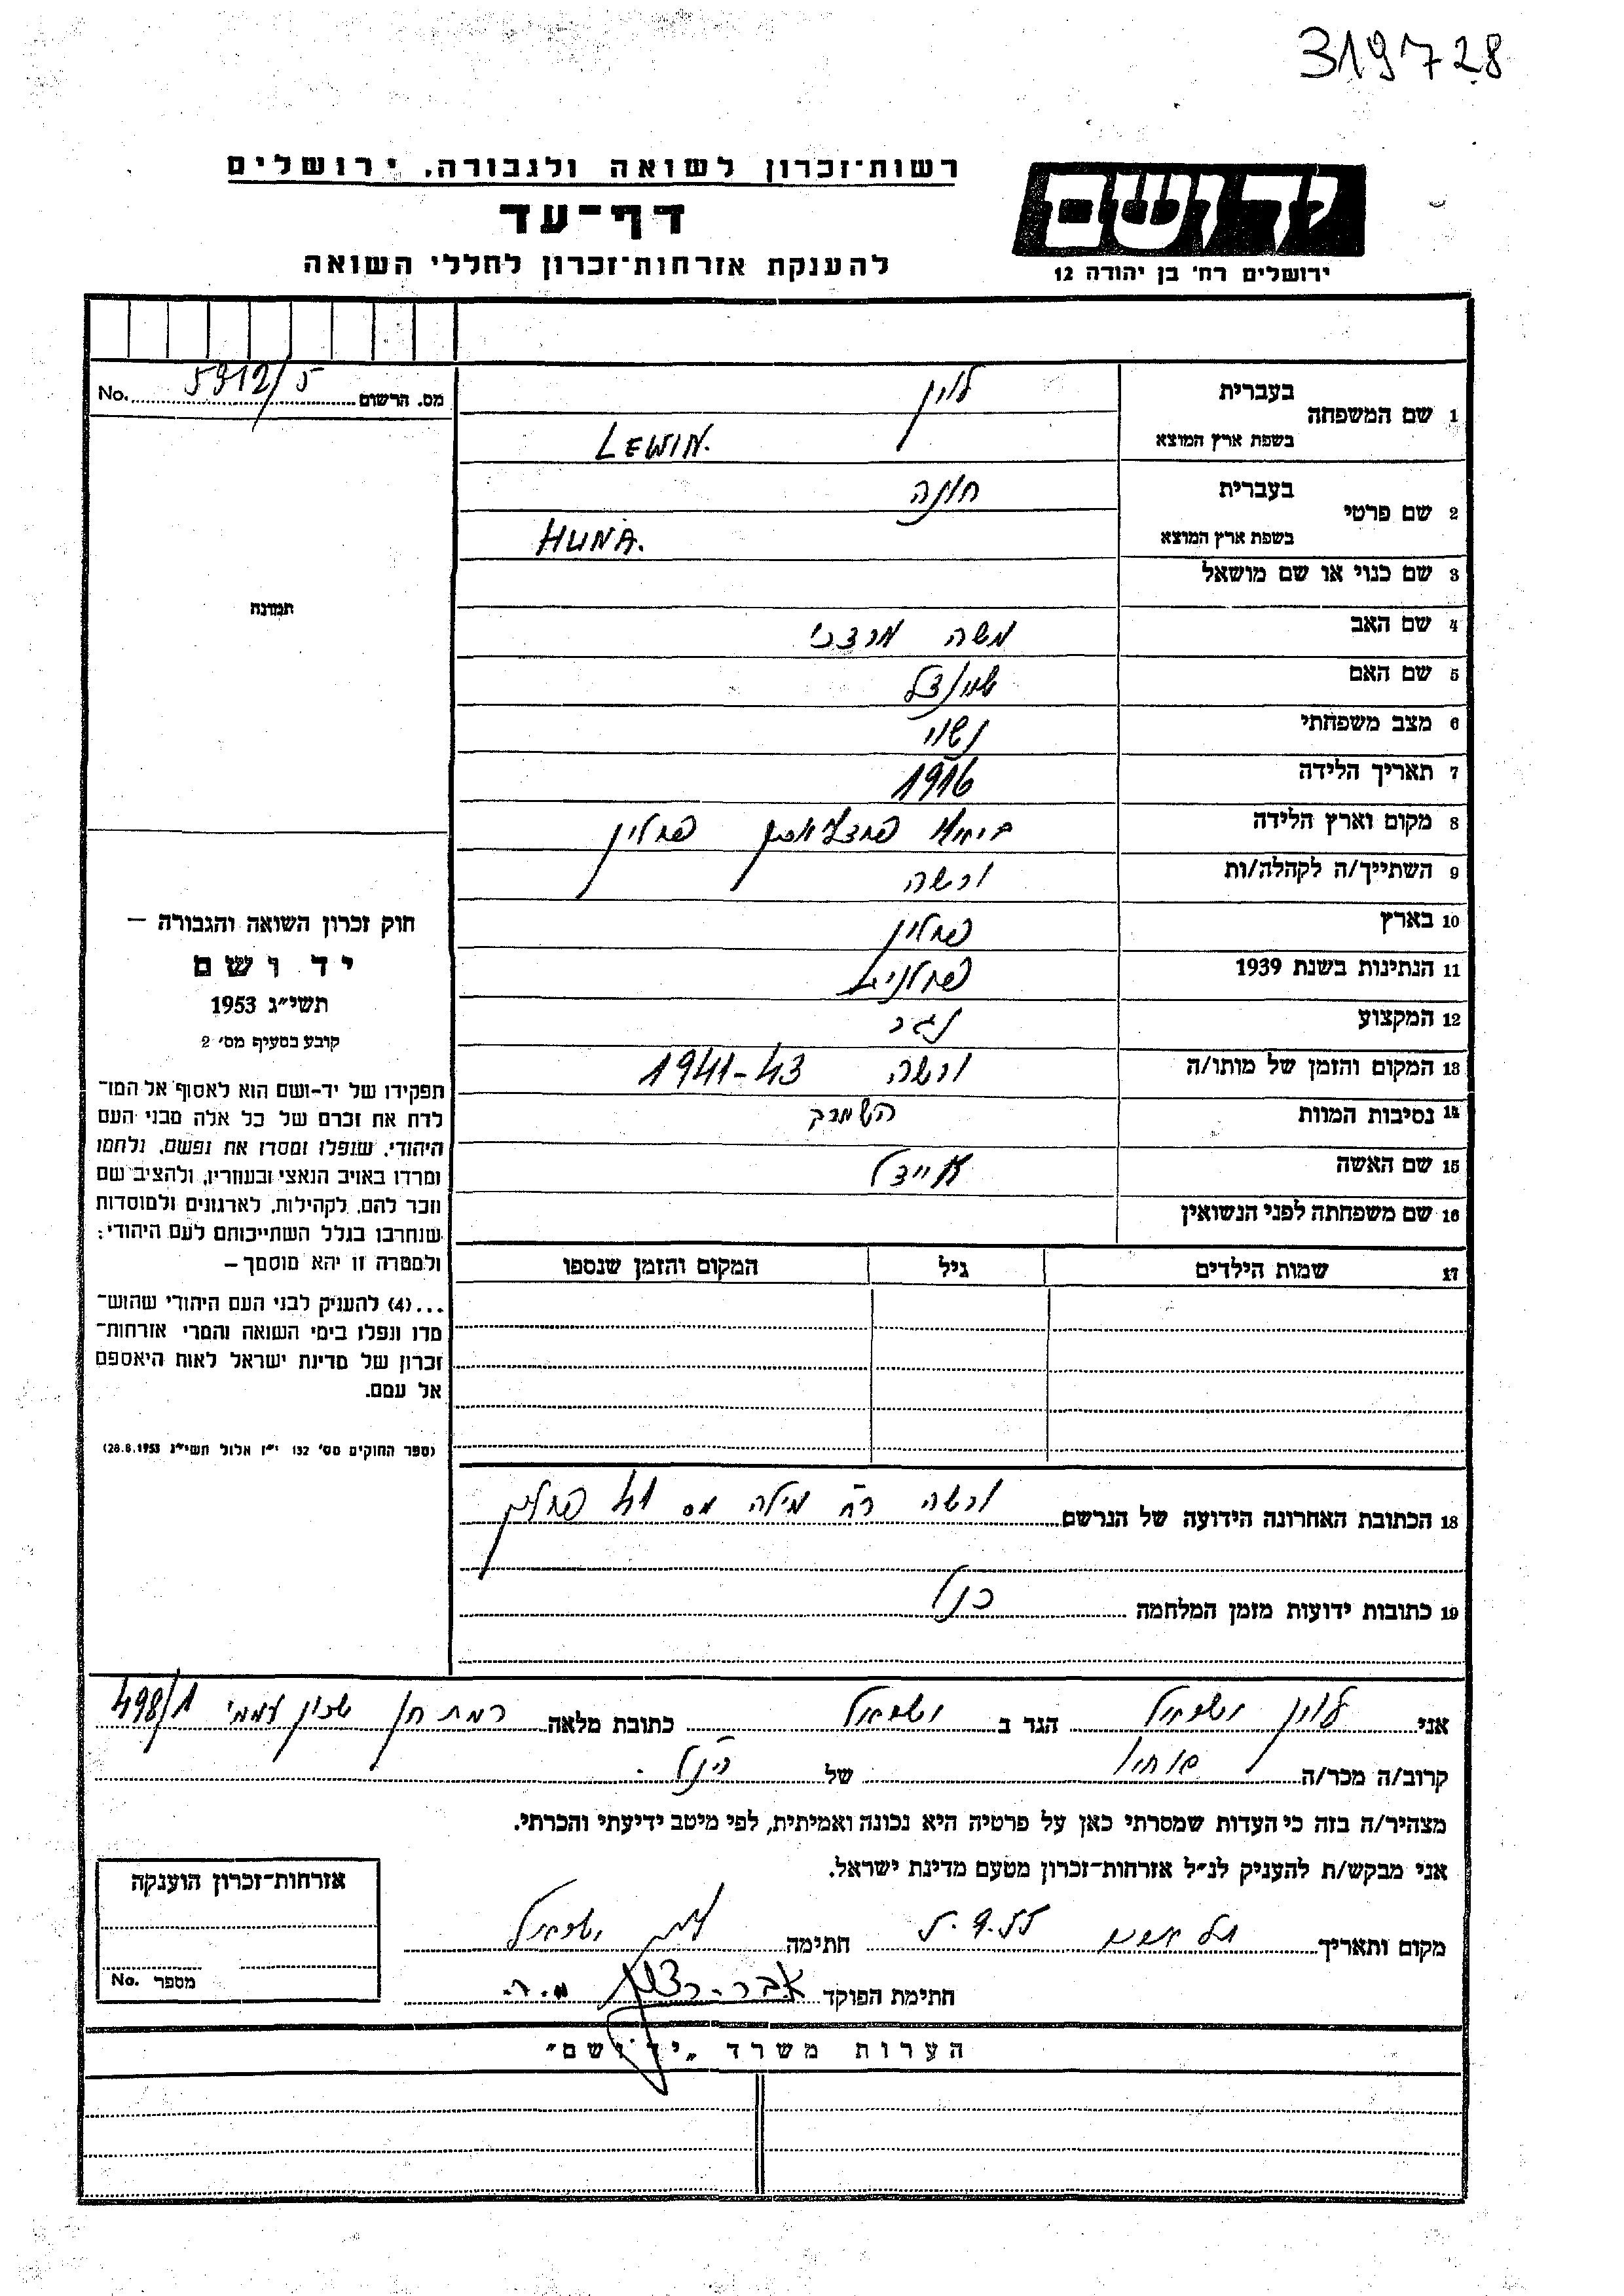 319728
רשות־זכרון לשואה ולגבורה. ירושלים
יד ושם
דף־עד
להענקת אזרחות־זכרון לחללי השואה
ירושלים רח' בן יהודה 12
מס. הרשום 5912/5 No.
1 שם המשפחה בעברית לוין
בשפת ארץ המוצא LEWIN.
2 שם פרטי בעברית חונה
בשפת ארץ המוצא HUNA.
3 שם כנוי או שם מושאל
תמונה
4 שם האב משה מרדכי
5 שם האם
6 מצב משפחתי נשוי
7 תאריך הלידה 1916
8 מקום וארץ הלידה פולין
9 השתייך/ה לקהלה/ות ורשה
10 בארץ פולין
11 הנתינות בשנת 1939 פולנית
12 המקצוע נגר
13 המקום והזמן של מותו/ה ורשה 1941-43
14 נסיבות המוות
15 שם האשה איידל
16 שם משפחתה לפני הנשואין
17 שמות הילדים גיל המקום והזמן שנספו
חוק זכרון השואה והגבורה –
יד ושם
תשי״ג 1953
קובע בסעיף מס' 2
תפקידו של יד-ושם הוא לאסוף אל המו־
לדת את זכרם של כל אלה מבני העם
היהודי, שנפלו ומסרו את נפשם, נלחמו
ומרדו באויב הנאצי ובעוזריו, ולהציב שם
וזכר להם, לקהילות, לארגונים ולמוסדות
שנחרבו בגלל השתייכותם לעם היהודי;
ולמטרה זו יהא מוסמך –
...(4) להעניק לבני העם היהודי שהוש־
מדו ונפלו בימי השואה והמרי אזרחות־
זכרון של מדינת ישראל לאות היאספם
אל עמם.
(ספר החוקים מס' 132 י״ז אלול תשי״ג 28.8.1953)
18 הכתובת האחרונה הידועה של הנרשם ורשה רח מילה מס 41 פולין
19 כתובות ידועות מזמן המלחמה כנ״ל
אני לוין ישראל הגר ב ישראל כתובת מלאה רמת חן שכון עממי 498/1
קרוב/ה מכר/ה של הנ״ל.
מצהיר/ה בזה כי העדות שמסרתי כאן על פרטיה היא נכונה ואמיתית, לפי מיטב ידיעתי והכרתי.
אני מבקש/ת להעניק לנ״ל אזרחות־זכרון מטעם מדינת ישראל.
מקום ותאריך תל אביב 5.9.55 חתימה לוין ישראל
חתימת הפוקד
אזרחות־זכרון הוענקה
מספר No.
הערות משרד „יד ושם״